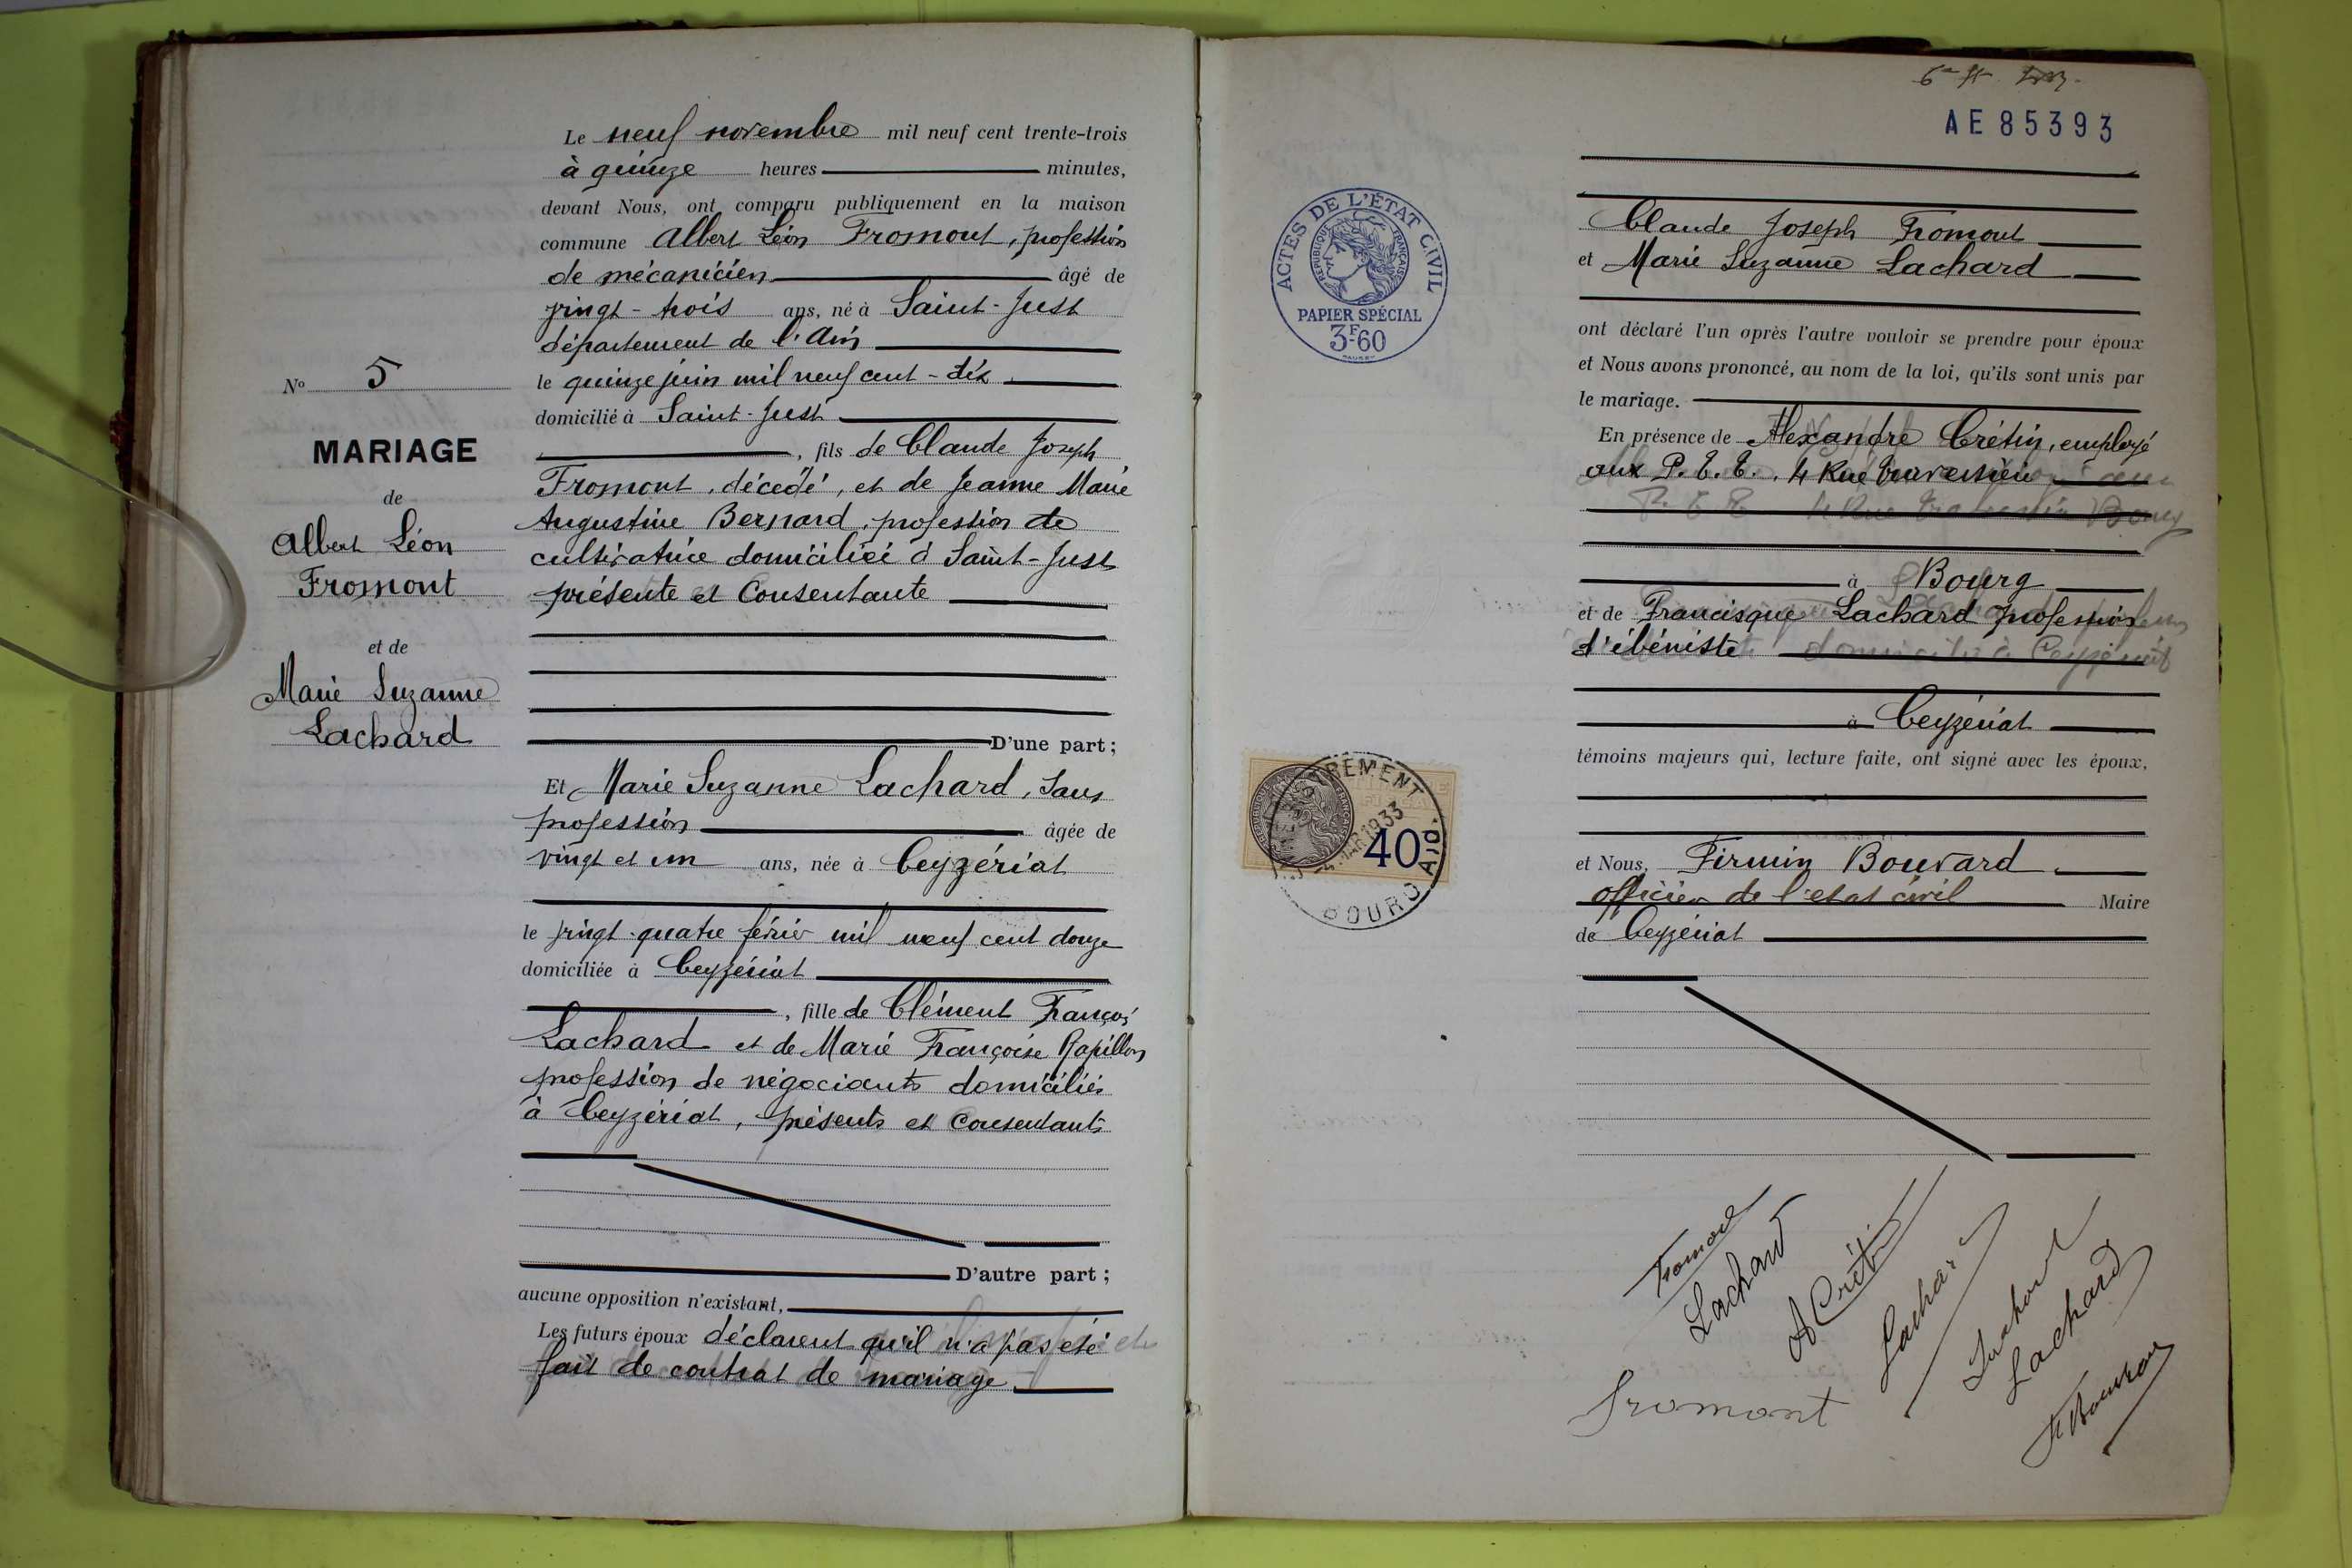 Le neuf novembre mil neuf cent trente-trois
à quinze heures minutes,
devant Nous, ont comparu publiquement en la maison
commune Albert Léon Fromont, profession
de mécanicien âgé de
vingt-trois ans, né à Saint-Just
département de l'Ain
le quinze juin mil neuf cent-dix
domicilié à Saint-Just
, fils de Claude Joseph
Fromont, décédé, et de Jeanne Marie
Augustine Bernard, profession de
cultivatrice domiciliée à Saint-Just
présente et Consentante
D'une part;
Nº 5
MARIAGE
de
Albert Léon
Fromont
et de
Marie Suzanne
Lachard
Et Marie Suzanne Lachard, sans
profession âgée de
vingt et un ans, née à Ceyzériat
le vingt-quatre février mil neuf cent douze
domiciliée à Ceyzériat
, fille de Clément François
Lachard et de Marie Françoise Rapillon
profession de négociants domiciliés
à Ceyzériat, présents et Consentants
D'autre part;
aucune opposition n'existant,
Les futurs époux déclarent qu'il n'a pas été
fait de contrat de mariage
AE 85393
ACTES DE L'ÉTAT CIVIL
RÉPUBLIQUE FRANÇAISE
PAPIER SPÉCIAL
3F60
Claude Joseph Fromont
et Marie Suzanne Lachard
ont déclaré l'un après l'autre vouloir se prendre pour époux
et Nous avons prononcé, au nom de la loi, qu'ils sont unis par
le mariage.
En présence de Alexandre Crétin, employé
aux P.T.T., 4 Rue Traversière
à Bourg
et de Francisque Lachard profession
d'ébéniste
à Ceyzériat
témoins majeurs qui, lecture faite, ont signé avec les époux,
40
1933
BOURG
et Nous, Firmin Bouvard
officier de l'etat civil Maire
de Ceyzériat
Fromont
Lachard
A Crétin
Lachard
Lachard
Lachard
Fromont
F Bouvard